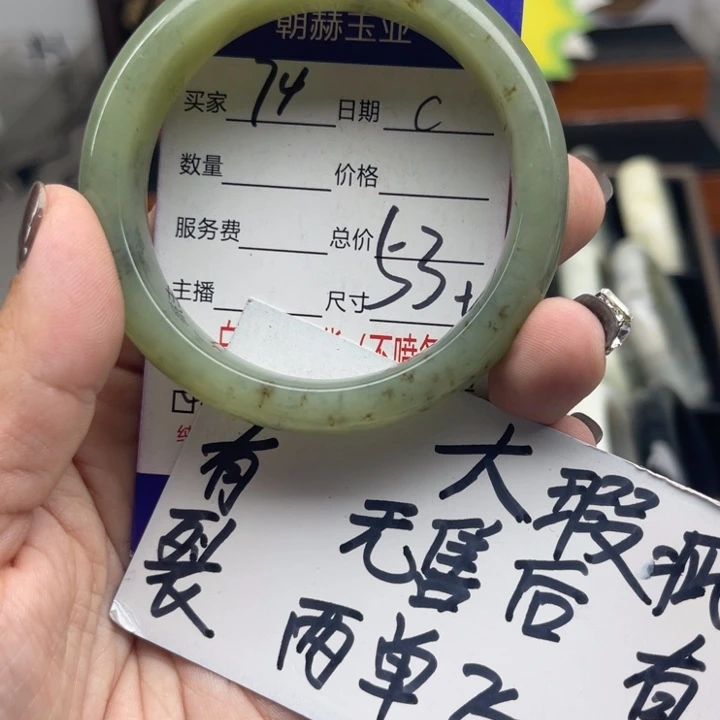 朝赫玉业
买家 74 日期 C
数量 价格
服务费 总价
主播 尺寸 53+
有 大瑕疵
裂 无售后 有
两单